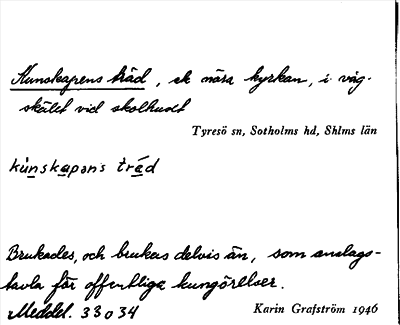 Kunskapens träd, ek nära kyrkan, i väg-
skälet vid skolhuset
Tyresö sn, Sotholms hd, Shlms län
kùnskapəns trä́d
Brukades, och brukas delvis än, som anslags-
tavla för offentliga kungörelser.
Meddel. 33 o 34
Karin Grafström 1946